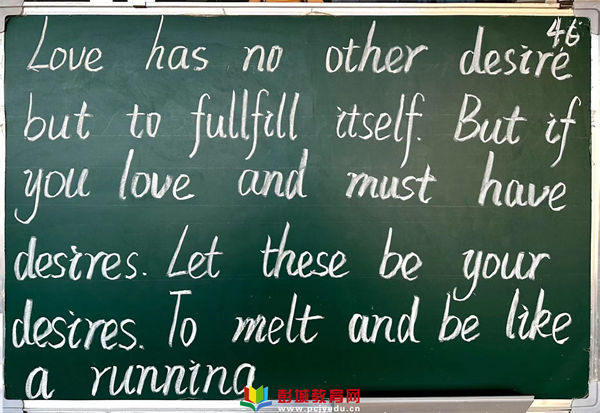 46
Love has no other desire
but to fullfill itself. But if
you love and must have
desires. Let these be your
desires. To melt and be like
a running
彭城教育网
www.pcjyedu.cn